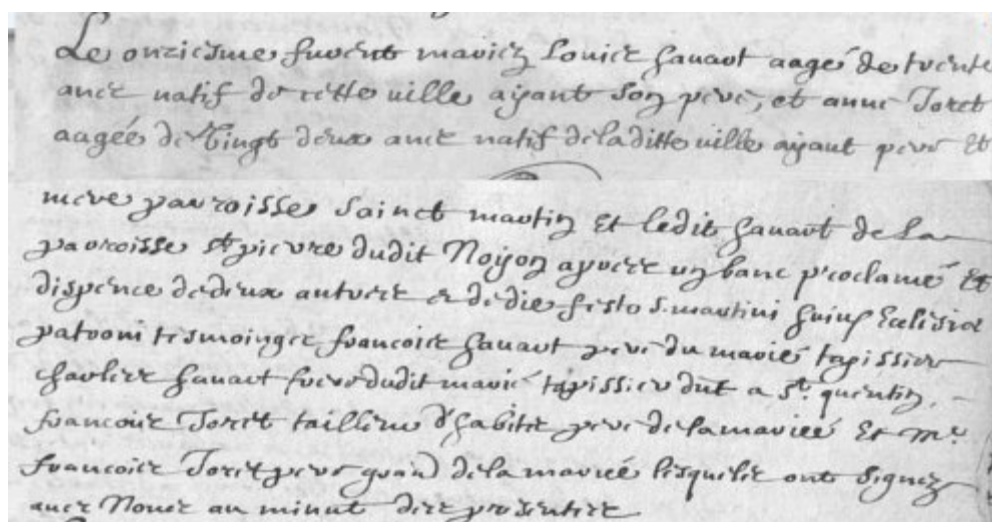 Le onziesme furent mariez Louis havart aagé de trente
ans natif de cette ville ayant son pere, et anne Toret
aagée de vingt deux ans natif de laditte ville ayant pere et
mere parroisse Sainct martin et ledit havart de la
parroisse st pierre dudit Noyon apres un banc proclamé et
dispence de deux autres et de die festo s. martini huius Eclesiæ
patroni tesmoinger francois havart pere du marié tapissier
charles havart frere dudit marié tapissier dmt a St. quentin,
francois Toret tailleur d'habits pere de la mariée Et mr.
francois Toret pere grand de la mariée lesquels ont Signez
avec Nous au minut des presentes